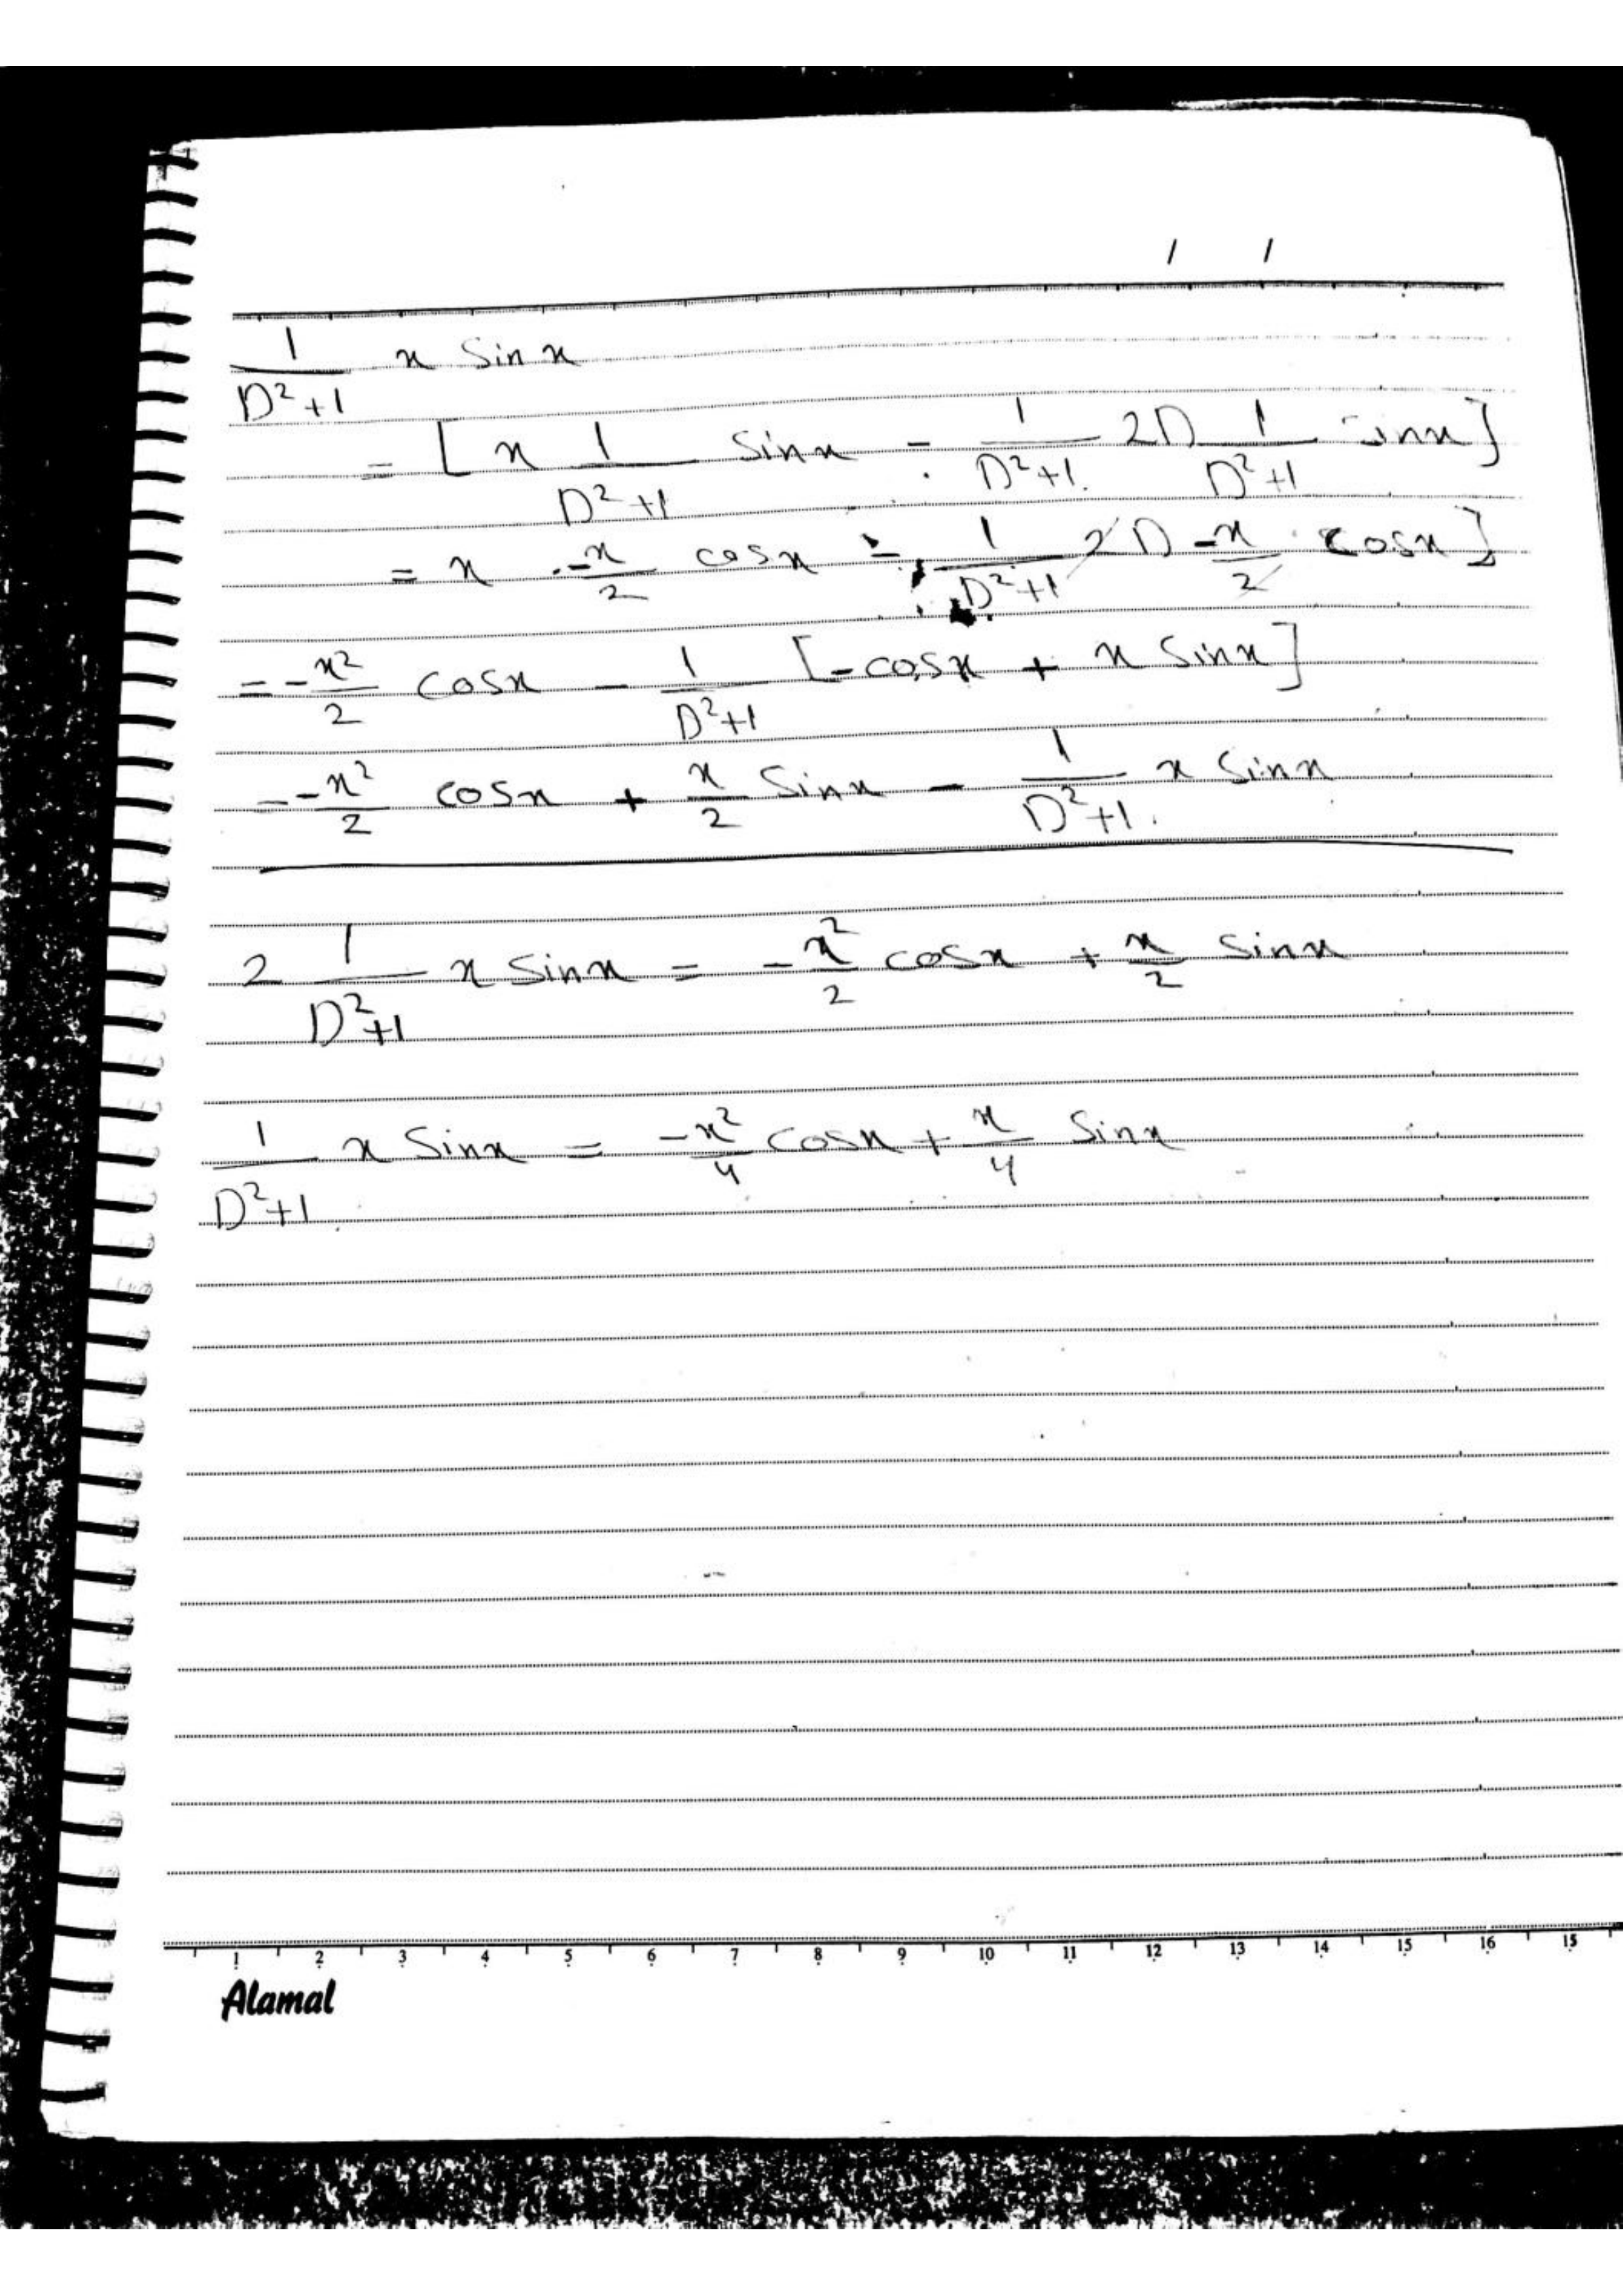 / /
1/(D²+1) x Sin x
= [x 1/(D²+1) Sinx - 1/(D²+1) 2D 1/(D²+1) sinx]
= x . -x/2 cosx - 1/(D²+1) 2D -x/2 cosx]
= -x²/2 cosx - 1/(D²+1) [-cosx + x Sinx]
= -x²/2 cosx + x/2 Sinx - 1/(D²+1) x Sinx
2 1/(D²+1) x Sinx = -x²/2 cosx + x/2 sinx
1/(D²+1) x Sinx = -x²/4 cosx + x/4 Sinx
1 2 3 4 5 6 7 8 9 10 11 12 13 14 15 16 15
Alamal